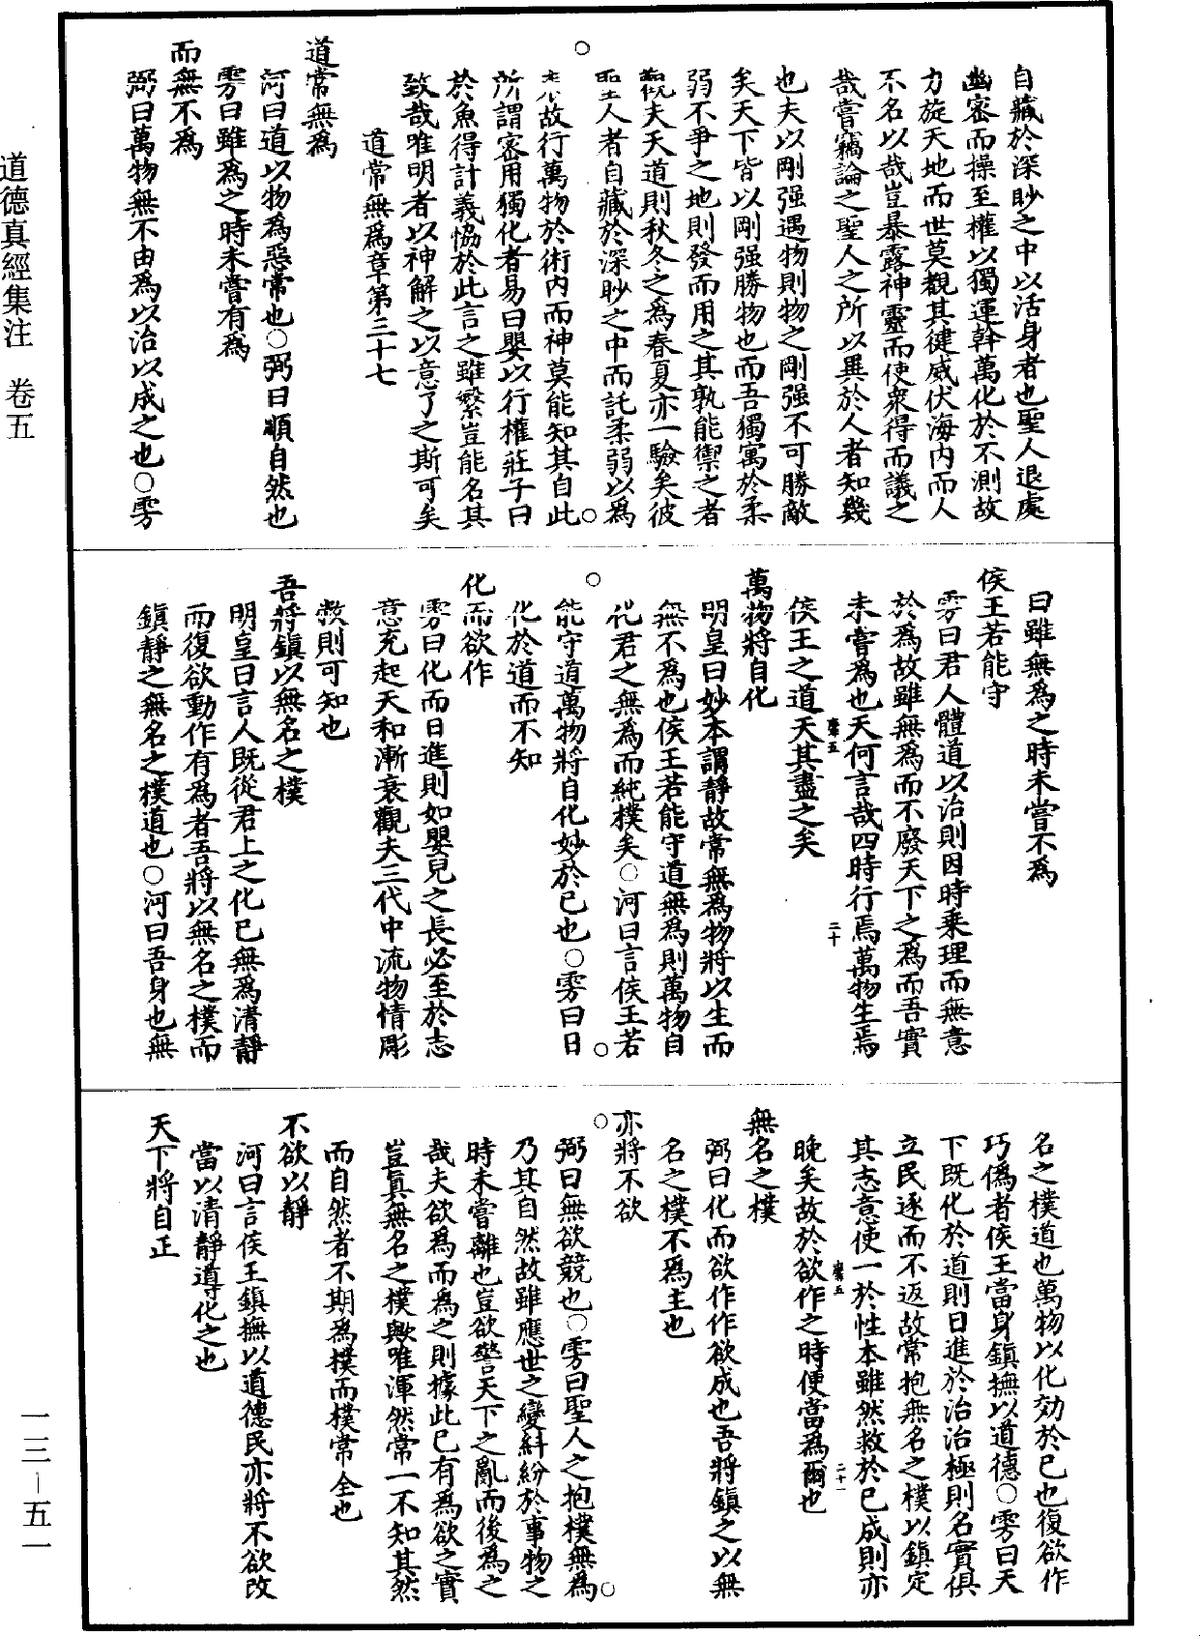 自藏於深眇之中以活身者也聖人退處
幽密而操至權以獨運斡萬化於不測故
力旋天地而世莫觀其健威伏海内而人
不名以哉豈暴露神靈而使衆得而議之
哉嘗竊論之聖人之所以異於人者知幾
也夫以剛强遇物則物之剛强不可勝敵
矣天下皆以剛强勝物也而吾獨寓於柔
弱不爭之地則發而用之其孰能禦之者
觀夫天道則秋冬之爲春夏亦一驗矣彼
聖人者自藏於深眇之中而託柔弱以爲
表故行萬物於術内而神莫能知其自此
所謂密用獨化者易曰巽以行權莊子曰
於魚得計義協於此言之雖繁豈能名其
致哉唯明者以神解之以意了之斯可矣
道常無爲章第三十七
道常無爲
河曰道以物爲惡常也○弼曰順自然也
雱曰雖爲之時未嘗有爲
而無不爲
弼曰萬物無不由爲以治以成之也○雱
曰雖無爲之時未嘗不爲
侯王若能守
雱曰君人體道以治則因時乗理而無意
於爲故雖無爲而不廢天下之爲而吾實
未嘗爲也天何言哉四時行焉萬物生焉
侯王之道天其盡之矣
萬物將自化
明皇曰妙本謂靜故常無爲物將以生而
無不爲也侯王若能守道無爲則萬物自
化君之無爲而純樸矣○河曰言侯王若
能守道萬物將自化妙於已也○雱曰日
化於道而不知
化而欲作
雱曰化而日進則如嬰兒之長必至於志
意充起天和漸衰觀夫三代中流物情彫
敝則可知也
吾將鎮以無名之樸
明皇曰言人既從君上之化已無爲清靜
而復欲動作有爲者吾將以無名之樸而
鎮靜之無名之樸道也○河曰吾身也無
名之樸道也萬物以化効於已也復欲作
巧僞者侯王當身鎮撫以道德○雱曰天
下既化於道則日進於治治極則名實俱
立民逐而不返故常抱無名之樸以鎮定
其志意使一於性本雖然救於已成則亦
晚矣故於欲作之時便當爲爾也
無名之樸
弼曰化而欲作作欲成也吾將鎮之以無
名之樸不爲主也
亦將不欲
弼曰無欲競也○雱曰聖人之抱樸無爲
乃其自然故雖應世之變糾紛於事物之
時未嘗離也豈欲警天下之亂而後爲之
哉夫欲爲而爲之則據此已有爲欲之實
豈真無名之樸歟唯渾然常一不知其然
而自然者不期爲樸而樸常全也
不欲以靜
河曰言侯王鎮撫以道德民亦將不欲改
當以清靜導化之也
天下將自正
道德真經集注　卷五
一三－五一